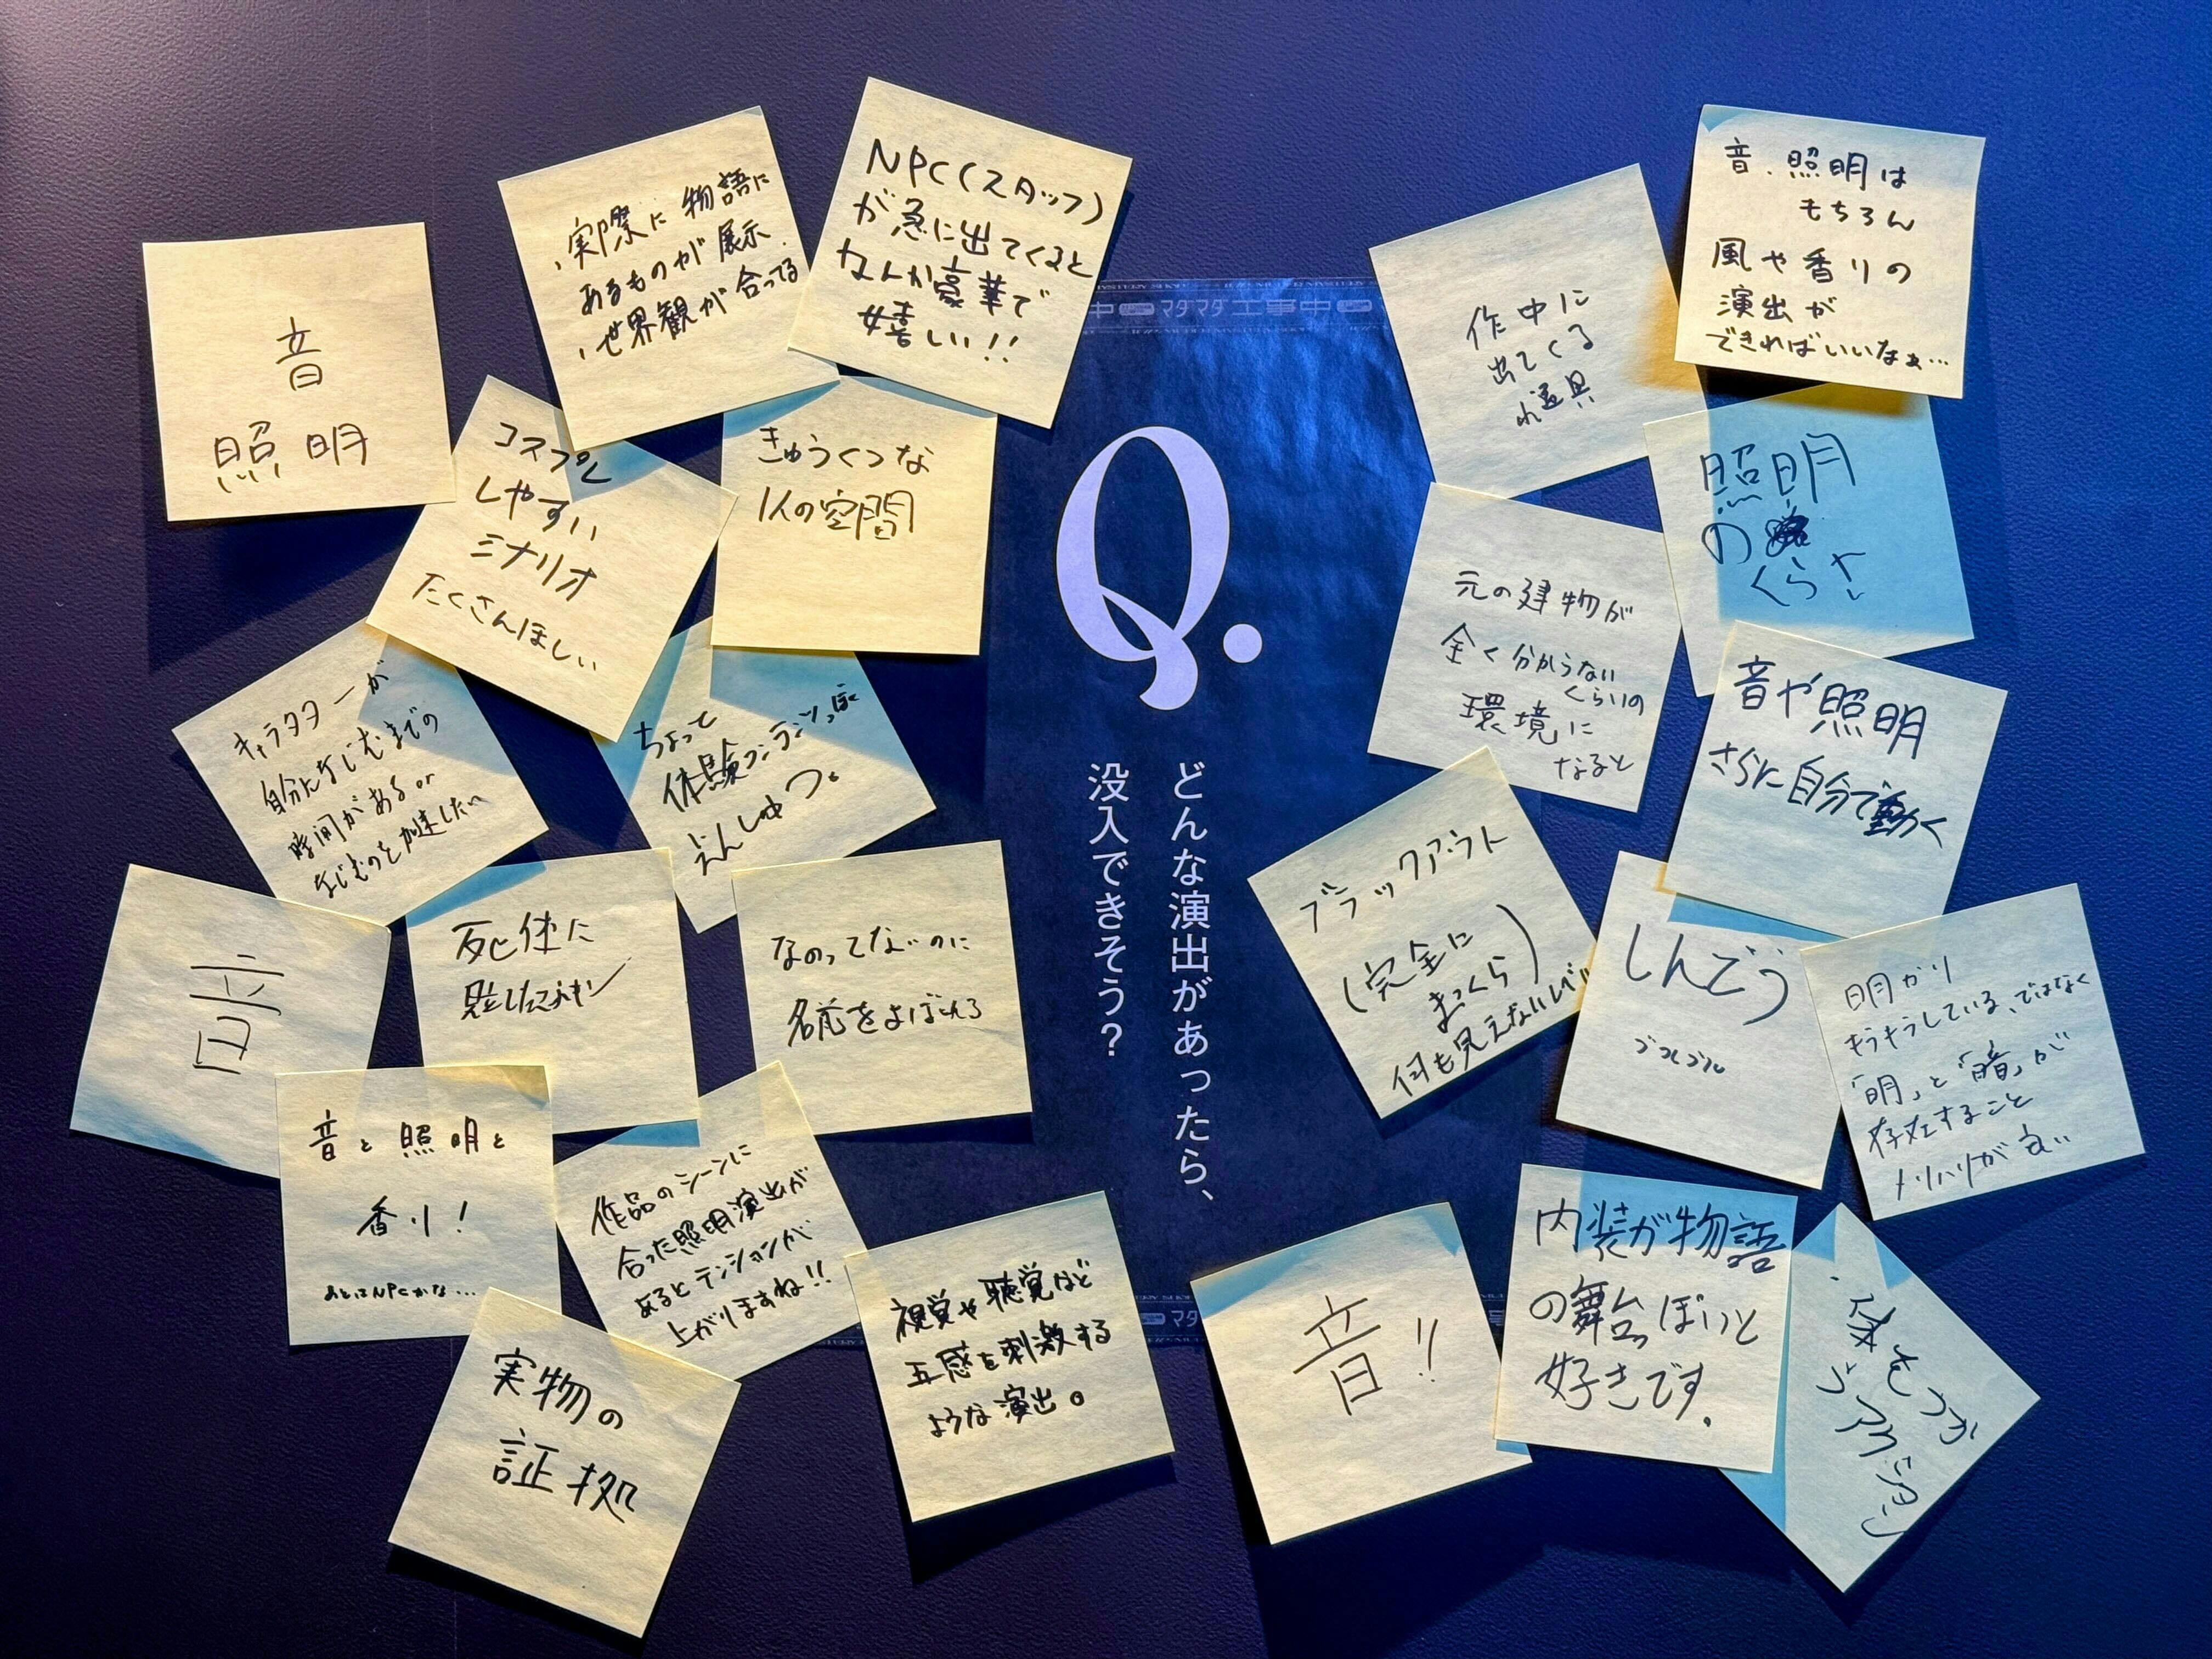 Q.
どんな演出があったら、
没入できそう？
マダマダ工事中
音
照明
・実際に物語に
あるものが展示
・世界観が合ってる
NPC(スタッフ)
が急に出てくると
なんか豪華で
嬉しい!!
コスプレ
しやすい
シナリオ
たくさんほしい
きゅうくつな
1人の空間
キャラクターが
自分になじむまでの
時間がある or
なじむのを加速したい
ちょっと
体験コンテンツっぽく
えんしゅつ。
音
死体に
なのってないのに
名前をよばれる
音と照明と
香り!
あとはNPCかな…
作品のシーンに
合った照明演出が
あるとテンションが
上がりますね!!
実物の
証拠
視覚や聴覚など
五感を刺激する
ような演出。
作中に
出てくる
小道具
音、照明は
もちろん
風や香りの
演出が
できればいいなぁ…
照明
の
くらさ!
元の建物が
全く分からない
くらいの
環境に
なると
音や照明
さらに自分で動く
ブラックアウト
(完全に
まっくら)
何も見えないレベル
しんどう
ブルブル
明かり
もうもうしている、ではなく
「明」と「暗」が
存在すること
メリハリが良い
音!!
内装が物語
の舞台っぽいと
好きです.
・体をつか
うアクション